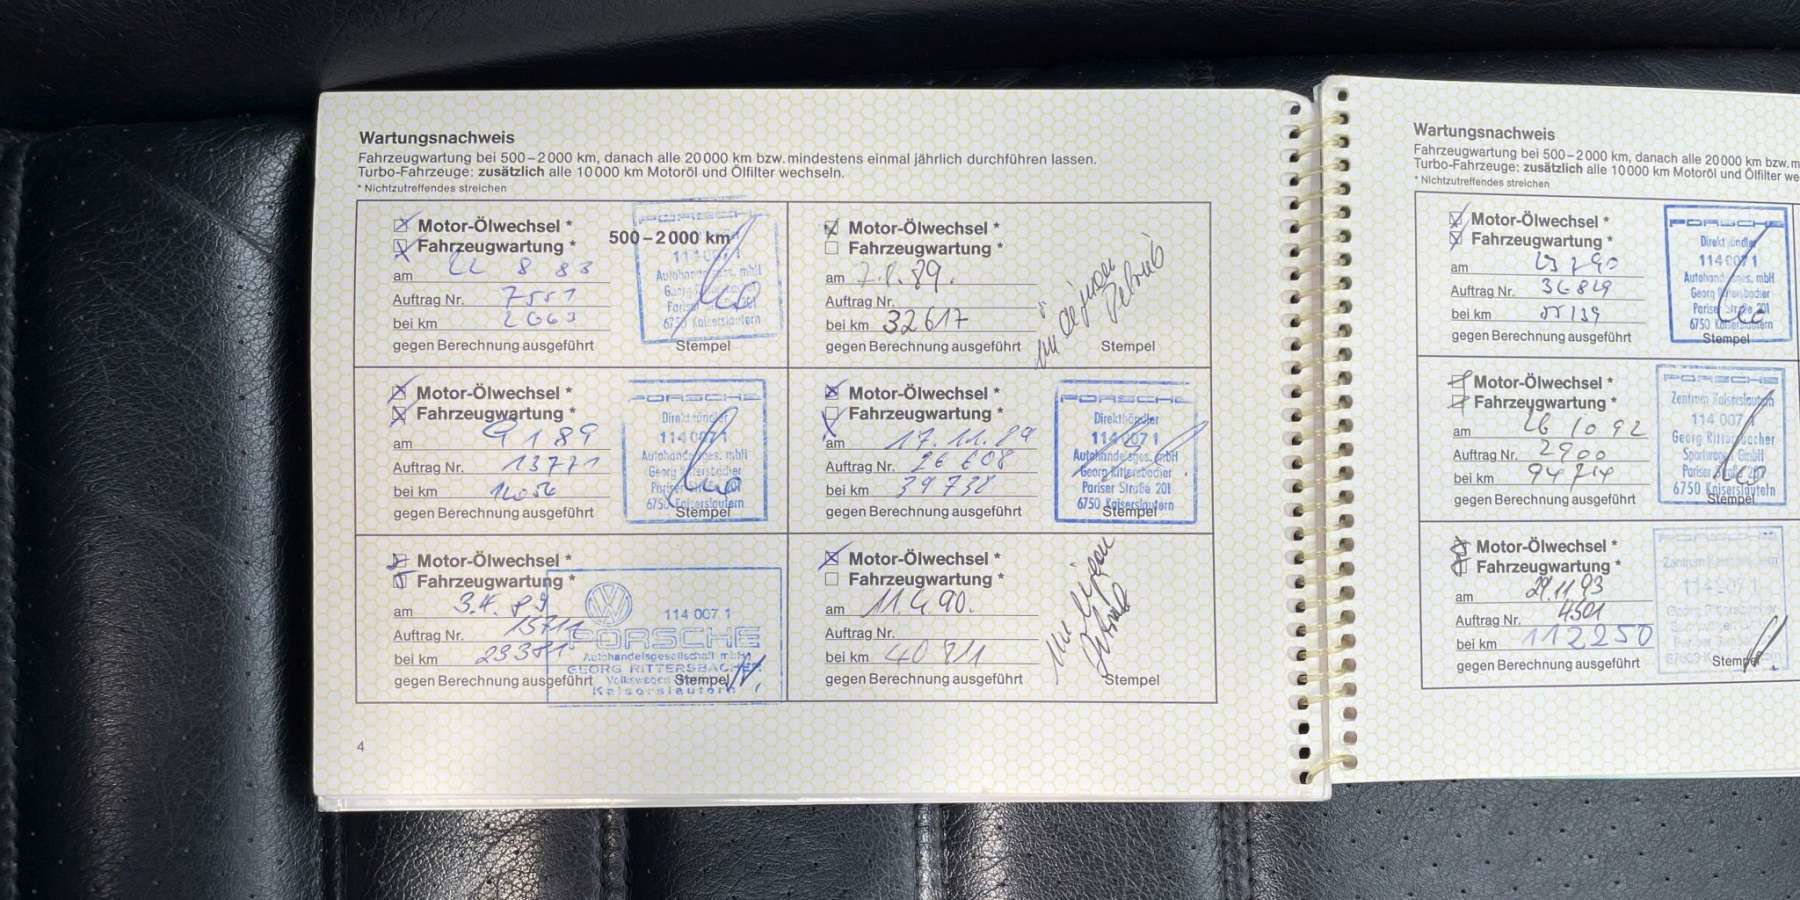 Wartungsnachweis
Fahrzeugwartung bei 500–2000 km, danach alle 20000 km bzw. mindestens einmal jährlich durchführen lassen.
Turbo-Fahrzeuge: zusätzlich alle 10000 km Motoröl und Ölfilter wechseln.
* Nichtzutreffendes streichen
Motor-Ölwechsel *
Fahrzeugwartung *
500–2000 km
am 22 8 88
Auftrag Nr. 7551
bei km 2663
gegen Berechnung ausgeführt
PORSCHE
114 007 1
Autohandelsges. mbH
Pariser Straße 201
6750 Kaiserslautern
Stempel
Motor-Ölwechsel *
Fahrzeugwartung *
am 9 1 89
Auftrag Nr. 13771
bei km
gegen Berechnung ausgeführt
PORSCHE
Direkthändler
114 007 1
Autohandelsges. mbH
Georg Rittersbacher
Pariser Straße 201
6750 Kaiserslautern
Stempel
Motor-Ölwechsel *
Fahrzeugwartung *
am 3.4.89
Auftrag Nr. 15711
bei km 23381
gegen Berechnung ausgeführt
114 007 1
PORSCHE
Autohandelsgesellschaft mbH
GEORG RITTERSBACHER
Kaiserslautern
Stempel
Motor-Ölwechsel *
Fahrzeugwartung *
am 7.8.89.
Auftrag Nr.
bei km 32617
gegen Berechnung ausgeführt
Stempel
Motor-Ölwechsel *
Fahrzeugwartung *
am 17.11.89
Auftrag Nr. 26608
bei km 39738
gegen Berechnung ausgeführt
PORSCHE
Direkthändler
114 007 1
Autohandelsges. mbH
Georg Rittersbacher
Pariser Straße 201
6750 Kaiserslautern
Stempel
Motor-Ölwechsel *
Fahrzeugwartung *
am 11.4.90.
Auftrag Nr.
bei km
gegen Berechnung ausgeführt
Stempel
4
Wartungsnachweis
Fahrzeugwartung bei 500–2000 km, danach alle 20000 km bzw.
Turbo-Fahrzeuge: zusätzlich alle 10000 km Motoröl und Ölfilter
* Nichtzutreffendes streichen
Motor-Ölwechsel *
Fahrzeugwartung *
am
Auftrag Nr. 36829
bei km 55139
gegen Berechnung ausgeführt
PORSCHE
Direkthändler
114 007 1
Autohandelsges. mbH
Georg Rittersbacher
Pariser Straße 201
6750 Kaiserslautern
Stempel
Motor-Ölwechsel *
Fahrzeugwartung *
am 26 10 92
Auftrag Nr. 2900
bei km 94714
gegen Berechnung ausgeführt
PORSCHE
Zentrum Kaiserslautern
114 007 1
Georg Rittersbacher
Sportwagen GmbH
Pariser Straße 201
6750 Kaiserslautern
Stempel
Motor-Ölwechsel *
Fahrzeugwartung *
am 29.11.93
Auftrag Nr. 4501
bei km 112250
gegen Berechnung ausgeführt
114 007 1
Stempel